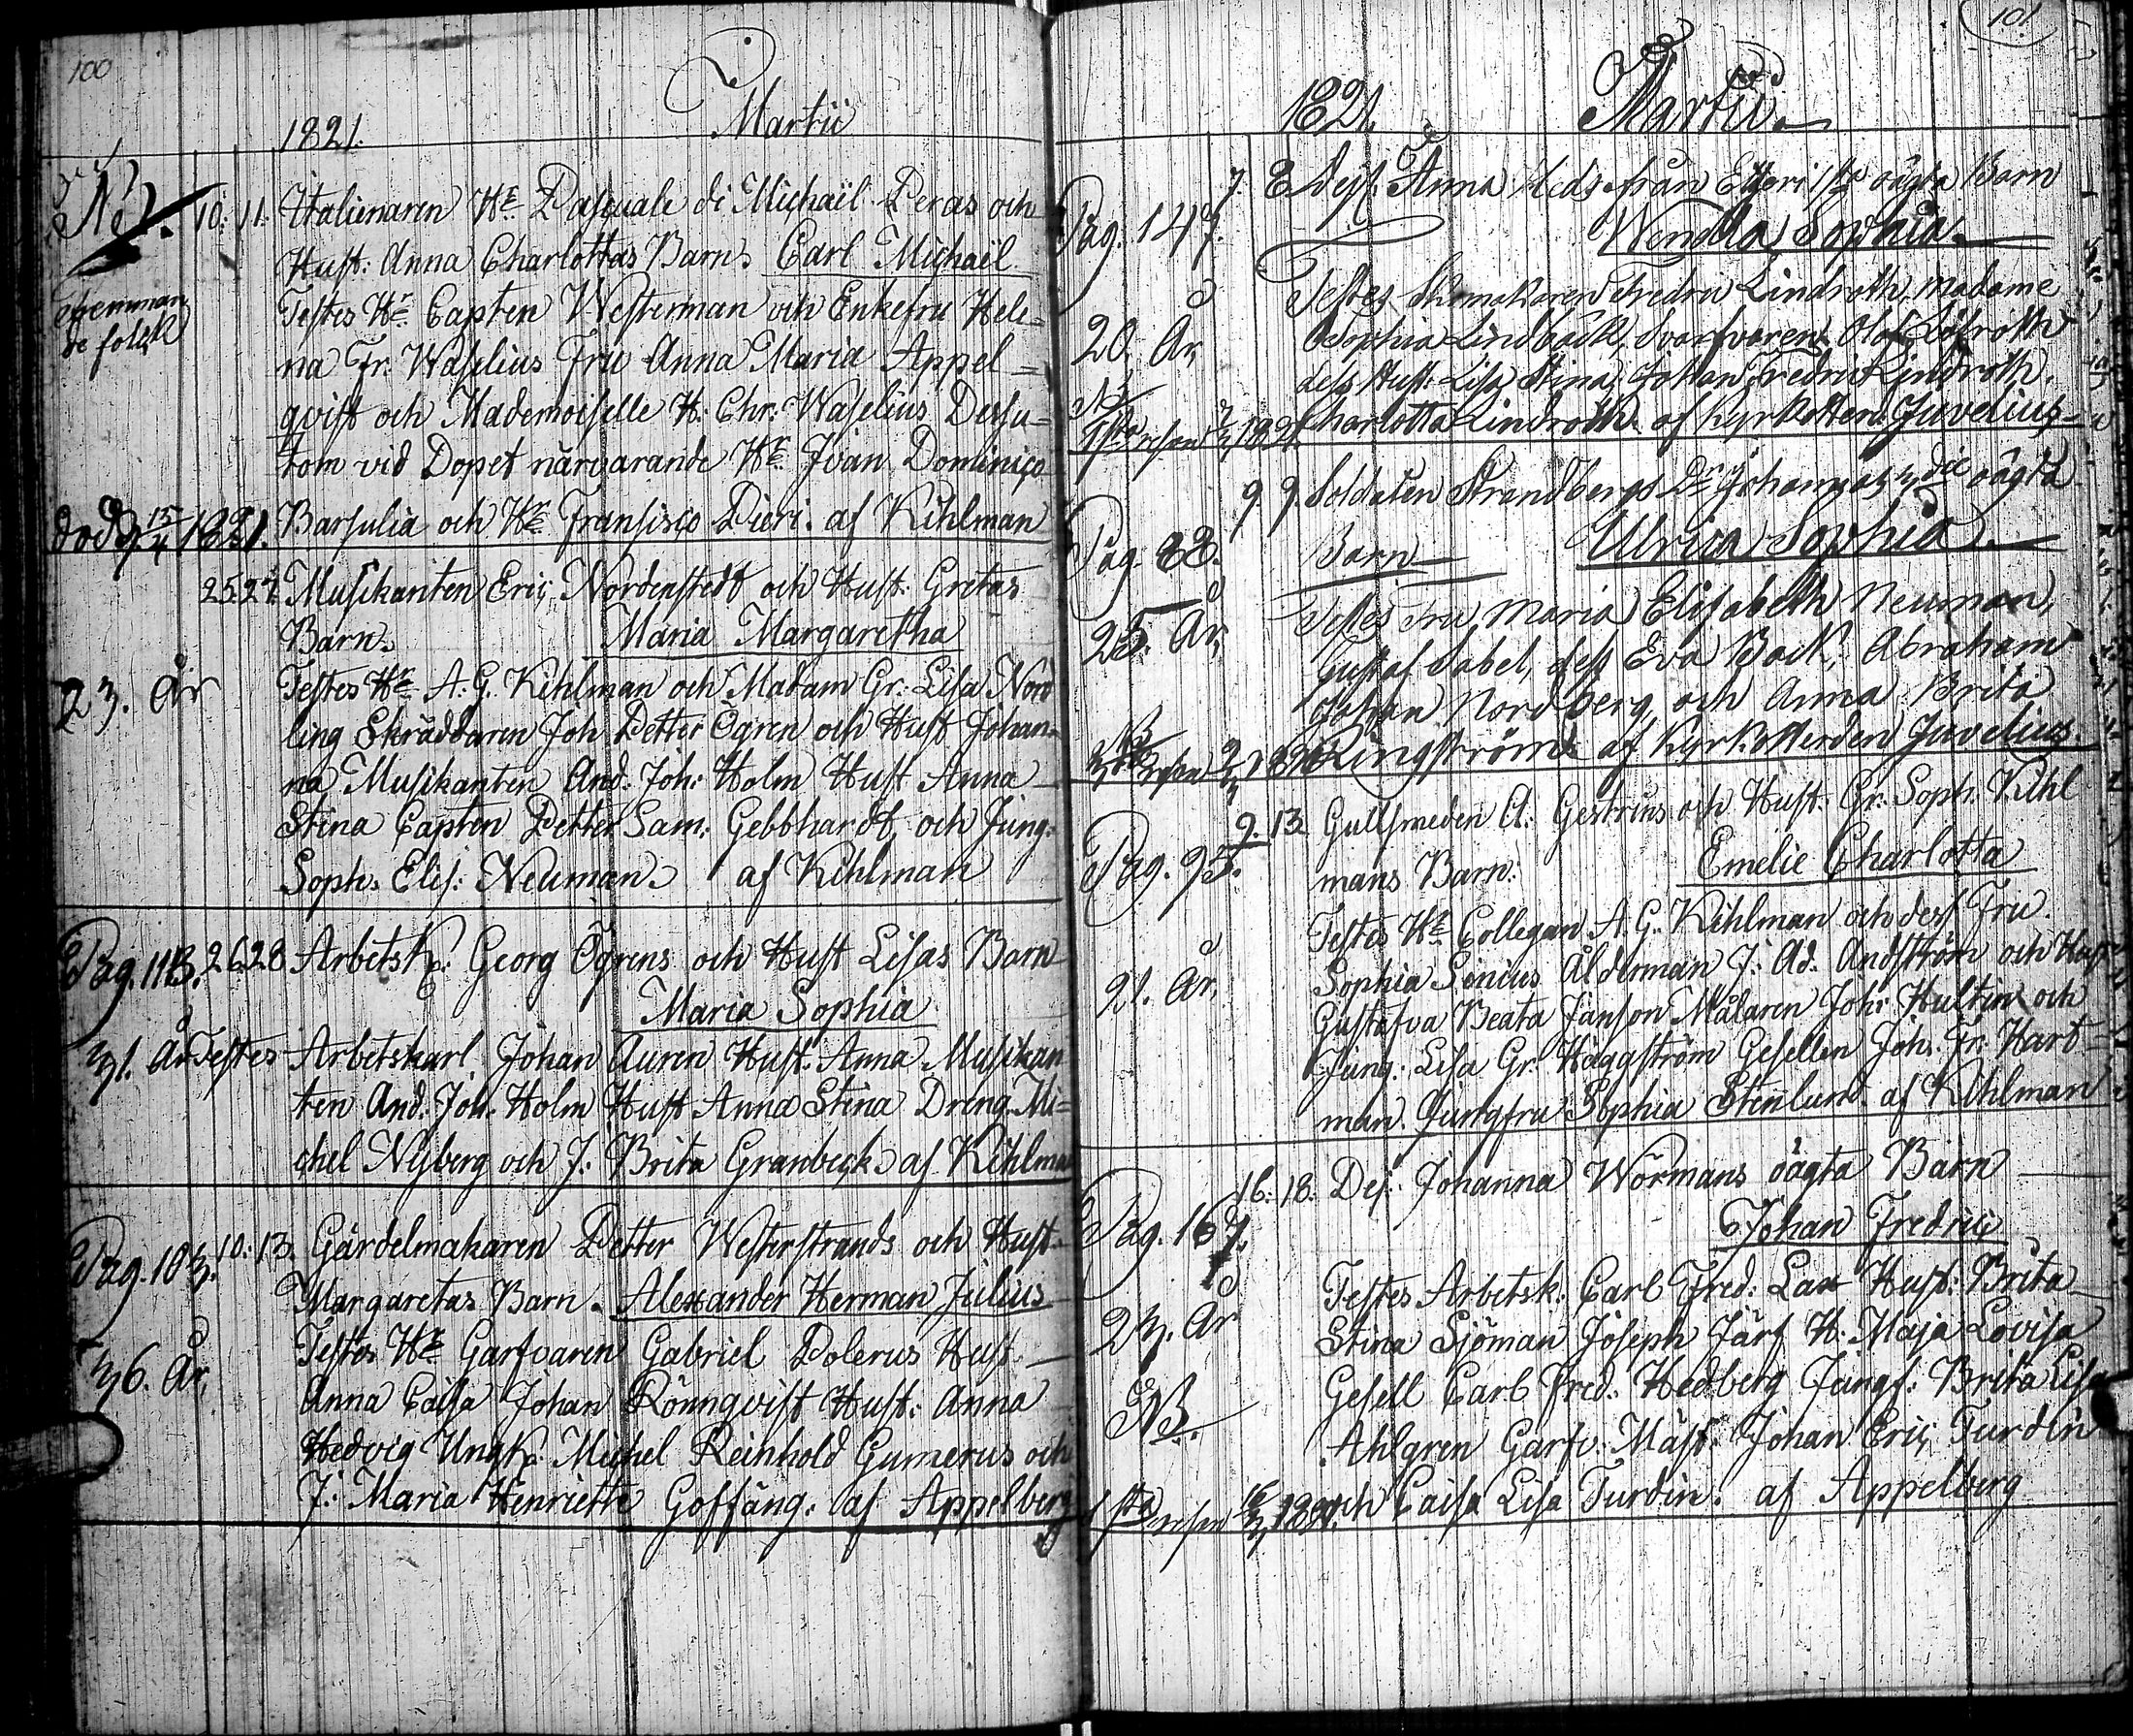 100
1821. Martii
10. 11. Italienaren Hr Pasquale di Michaïl Peras och
Hust: Anna Charlottas Barn. Carl Michaïl
Testes Hr Capten Westerman och Enkefru Hele=
na Fr. Waselius Fru Anna Maria Appel=
qvist och Mademoiselle H: Chr: Waselius Dessu=
tom vid Dopet närvarande Hr Ivan Dominico
död 15/4 1821. Barsulia och Hr Fransisco Pieri. af Kihlman
25. 27. Musikanten Eric Nordenstedt och Hust. Gretas
Barn. Maria Margaretha
23. År Testes Hr A. G. Kihlman och Madam Gr: Lisa Nord
ling Skräddaren Joh Petter Ögren och Hust Johan=
na Musikanten And. Joh: Holm Hust Anna
Stina Capten Petter Sam: Gebbhardt och Jung:
Soph. Elis: Neuman. af Kihlman
Pag. 113. 26. 28 Arbetsk: Georg Ögrens och Hust Lisas Barn
Maria Sophia
31. År Testes Arbetskarl Johan Auren Hust. Anna Musikan
ten And. Joh. Holm Hust Anna Stina Dreng Mi=
chel Nyberg och J: Brita Granbeck af Kihlman
Pag. 183. 10. 13. Gördelmakaren Petter Westerstrands och Hust.
Margaretas Barn. Alexander Herman Julius
36. År. Testes Hr Garfvaren Gabriel Polerus Hust
Anna Caisa Johan Rönnqvist Hust: Anna
Hedvig Ungk. Michel Reinhold Gumerus och
J: Maria Henriette Goffäng: af Appelberg
101
1821. Martii
Pag. 147. 7. 8 Dejt: Anna Heds från Etseri 1sta oägta Barn
Wendla Sophia
Testes Skomakaren Fredric Lindroth, Madame
20. År Sophia Lindbäck, Svarfvaren Olof Löfroth
dess Hust: Lisa Stina, Johan Fredric Lindroth,
1sta resan 1821. Charlotta Lindroth. af Kyrkoherden Juvelius
9. 9. Soldaten Strandbergs Dr Johannas 3die oägta
Pag. 88. Barn Ulrica Sophia
Testes Fru Maria Elisabeth Neuman,
25. År Gustaf Sabel, dess Eva Back, Abraham
Johan Nordberg, och Anna Brita
Ringström af Kyrkoherden Juvelius.
9. 13. Gullsmeden A: Gestrins och Hust: Gr: Soph: Kihl
Pag. 95. mans Barn: Emelie Charlotta
Testes Hr Collegan A. G. Kihlman och dess Fru
21. År Sophia Simius Ålderman J: Ad. Andström och Hust
Gustafva Beata Janson Målaren Joh: Hultin och
Jung: Lisa Gr. Häggström Gesellen Joh. Fr. Hart=
man. Jungfru Sophia Stenlund. af Kihlman
16. 18. Dej: Johanna Wörmans oägta Barn
Pag. 167. Johan Fredric
Testes Arbetsk: Carl Fred: Lax Hust: Brita
23. År Stina Sjöman Joseph Järf H: Maja Lovisa
NB. Gesell Carl Fred: Hedberg Jungf: Brita Lisa
Ahlgren Garfv: Mäst: Johan Eric Turdin
1sta resan och Caisa Lisa Turdin. af Appelberg